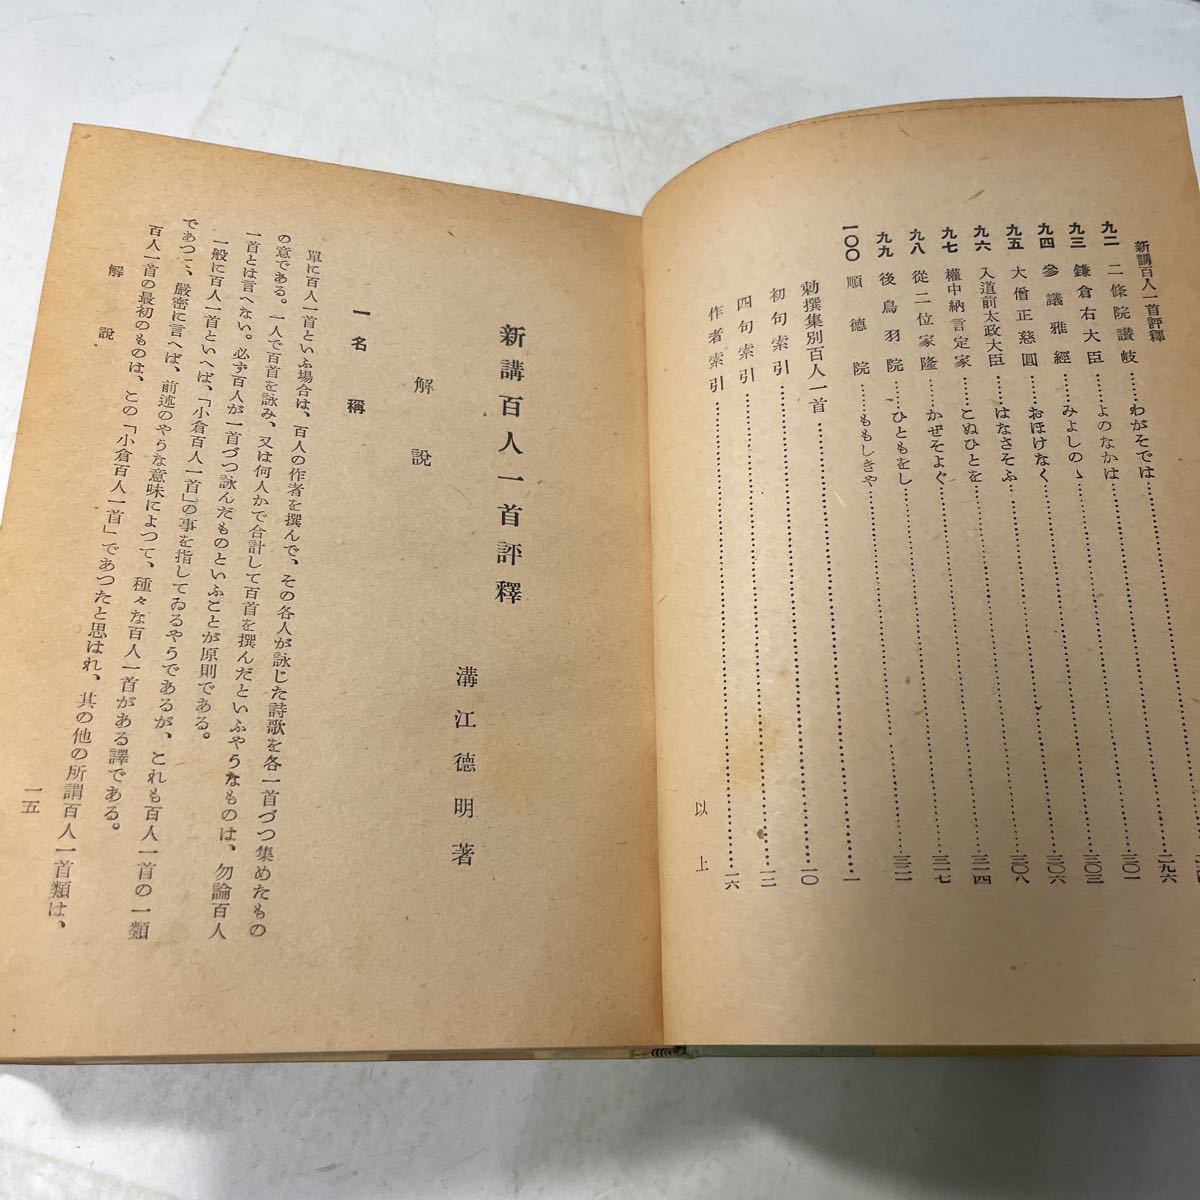 新講百人一首評釋
二九六
九二 二條院讃岐……わがそでは……三〇一
九三 鎌倉右大臣……よのなかは……三〇三
九四 參議雅經……みよしのゝ……三〇六
九五 大僧正慈圓……おほけなく……三〇八
九六 入道前太政大臣……はなさそふ……三一四
九七 權中納言定家……こぬひとを……三一七
九八 從二位家隆……かぜそよぐ
九九 後鳥羽院……ひともをし
一〇〇 順德院……ももしきや……一
勅撰集別百人一首……一〇
初句索引……一二
四句索引……一六
作者索引
以上
新講百人一首評釋
溝江德明著
解說
一 名稱
單に百人一首といふ場合は、百人の作者を撰んで、その各人が詠じた詩歌を各一首づつ集めたもの
の意である。一人で百首を詠み、又は何人かで合計して百首を撰んだといふやうなものは、勿論百人
一首とは言へない。必ず百人が一首づつ詠んだものといふことが原則である。
一般に百人一首といへば、「小倉百人一首」の事を指してゐるやうであるが、これも百人一首の一類
であつて、嚴密に言へば、前述のやうな意味によつて、種々な百人一首がある譯である。
百人一首の最初のものは、この「小倉百人一首」であつたと思はれ、其の他の所謂百人一首類は、
解說
一五